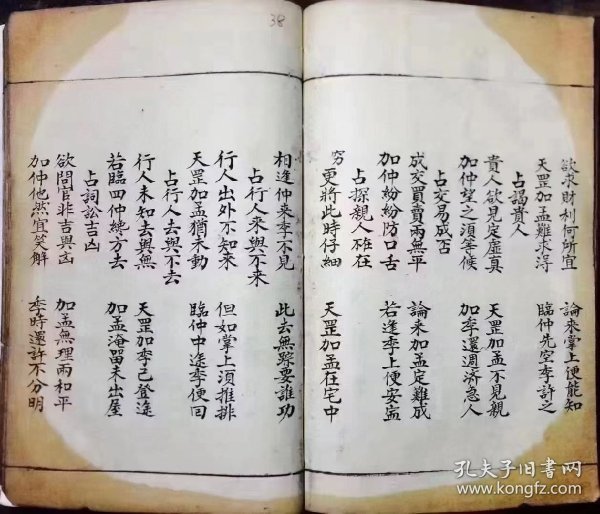 38
欲求財利何所宜 論來掌上便能知
天罡加孟難求淂 臨仲先空季許之
占謁貴人
貴人欲見定虛真 天罡加孟不見親
加仲望之須等候 加季還週济急人
占交易成否
成交買賣兩無平 論来加孟定難成
加仲紛紛防口舌 若逢季上便安寍
占探親人在在
窃更將此時仔細 天罡加孟在宅中
相逢仲来季不見 此去無踪要誰功
占行人来與不来
行人出外不知来 但如掌上須推排
天罡加孟猶未動 臨仲中途季便回
占行人去與不去
行人未知去與無 天罡加季已登途
若臨四仲纔方去 加孟淹留未出屋
占詞訟吉凶
欲問官非吉與凶 加孟無理兩和平
加仲他然宜笑解 季時還許不分明
孔夫子旧书网
www.kongfz.com